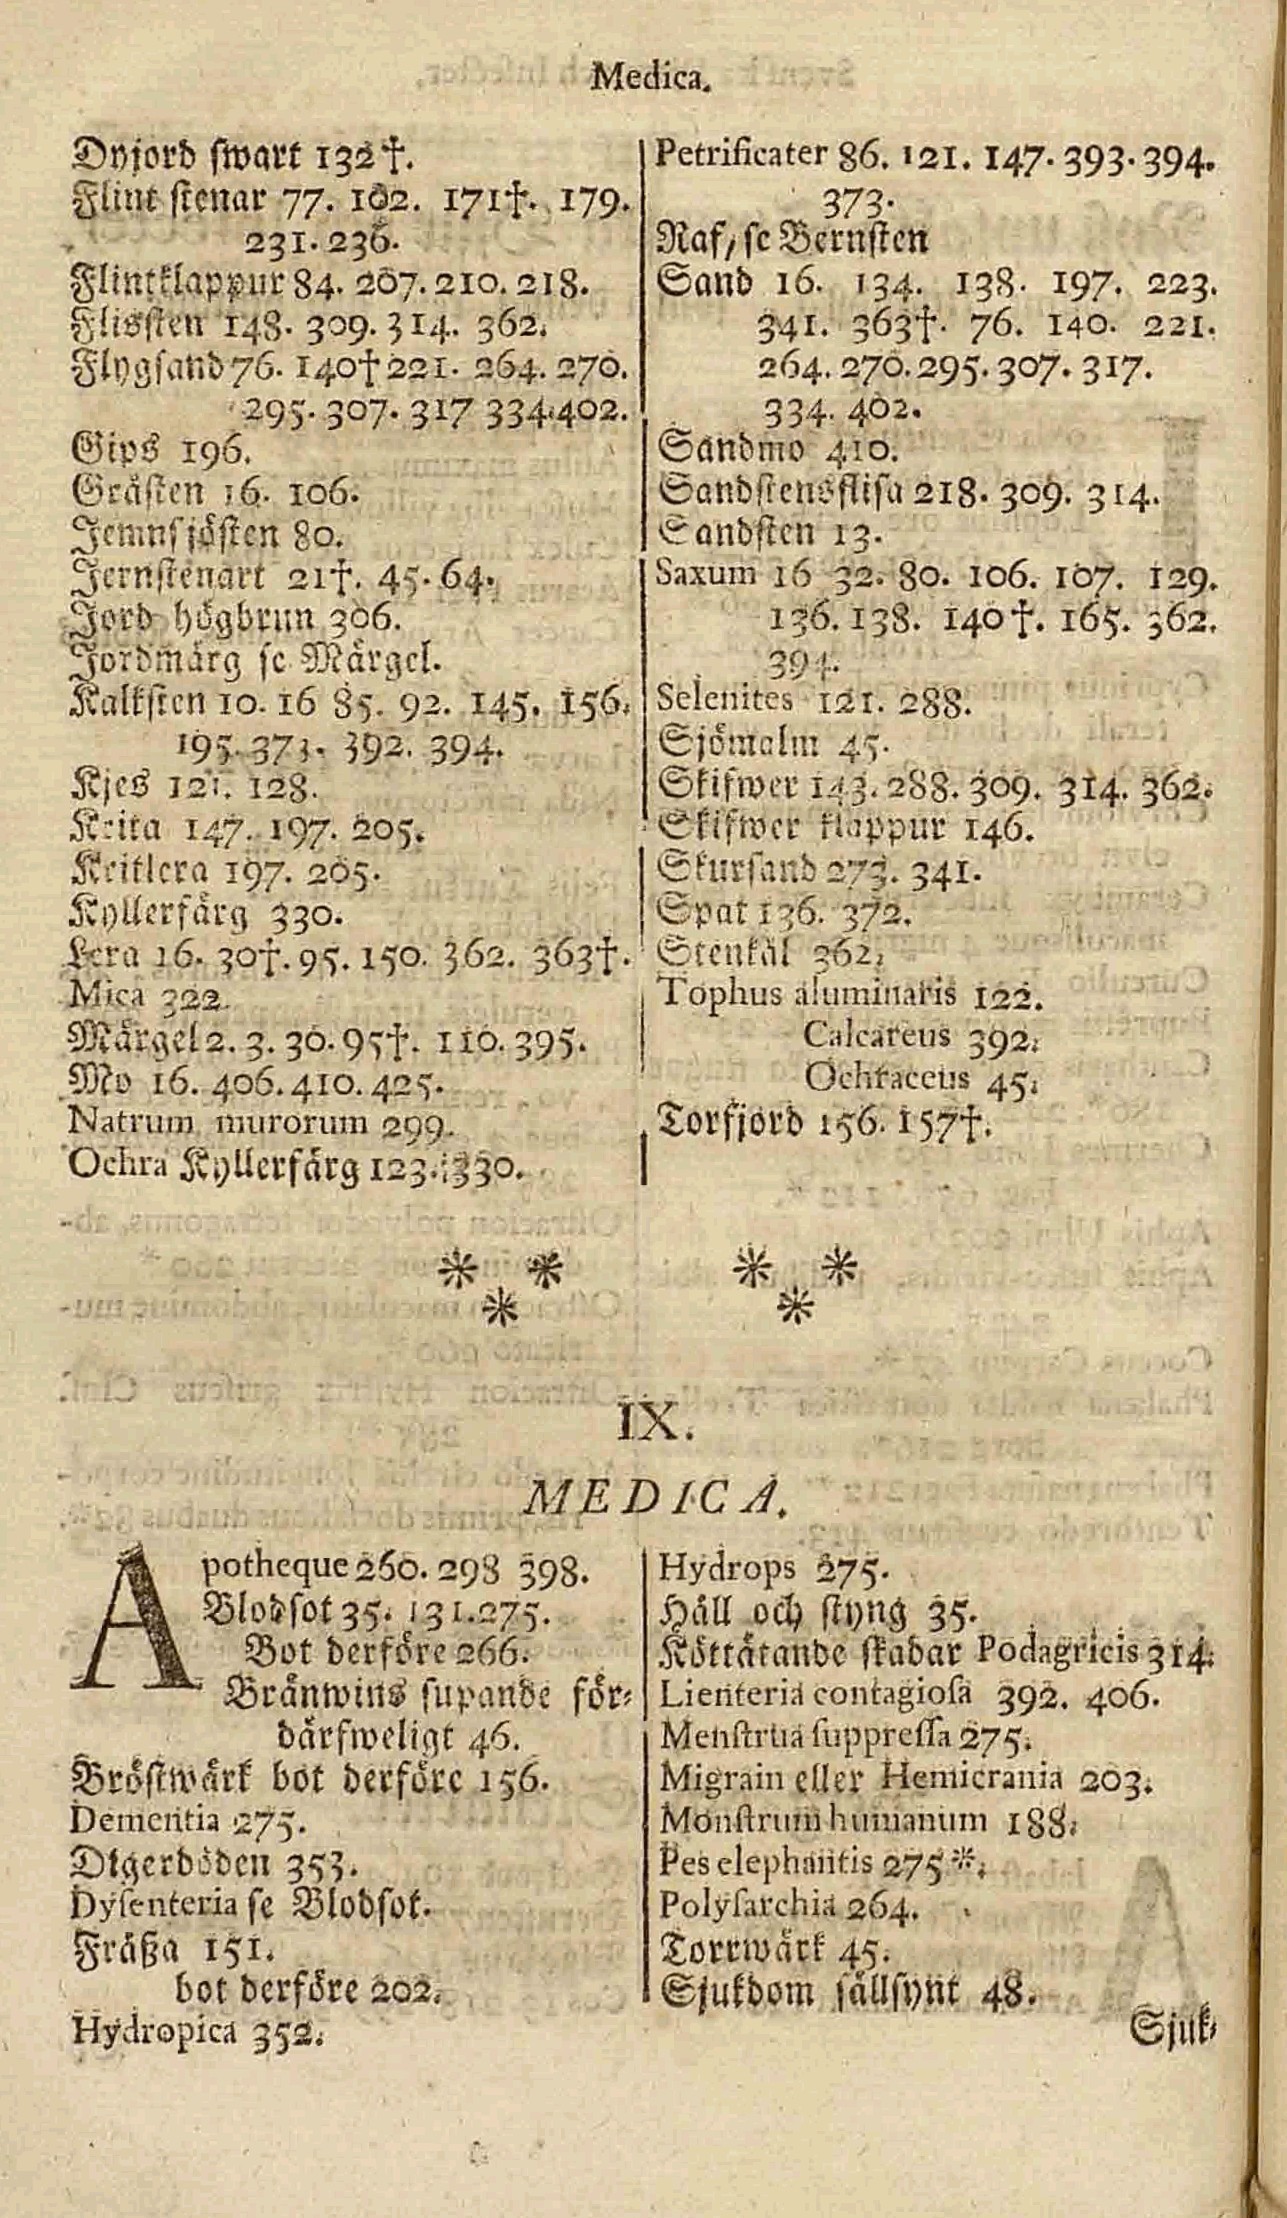 Medica.
Dyjord swart 132†.
Flint stenar 77. 102. 171†. 179.
231. 236.
Flintklappur 84. 207. 210. 218.
Flissten 148. 309. 314. 362.
Flygsand 76. 140† 221. 264. 270.
295. 307. 317 334. 402.
Gips 196.
Gråsten 16. 106.
Jemnsjösten 80.
Jernstenart 21†. 45. 64.
Jord högbrun 306.
Jordmärg se Märgel.
Kalksten 10. 16 85. 92. 145. 156.
195. 373. 392. 394.
Kjes 121. 128.
Krita 147. 197. 205.
Kritlera 197. 205.
Kyllerfärg 330.
Lera 16. 30†. 95. 150. 362. 363†.
Mica 322.
Märgel 2. 3. 30. 95†. 110. 395.
Mo 16. 406. 410. 425.
Natrum murorum 299.
Ochra Kyllerfärg 123. 330.
Petrificater 86. 121. 147. 393. 394.
373.
Raf, se Bernsten
Sand 16. 134. 138. 197. 223.
341. 363†. 76. 140. 221.
264. 270. 295. 307. 317.
334. 402.
Sandmo 410.
Sandstensflisa 218. 309. 314.
Sandsten 13.
Saxum 16 32. 80. 106. 107. 129.
136. 138. 140†. 165. 362.
394.
Selenites 121. 288.
Sjömalm 45.
Skifwer 143. 288. 309. 314. 362.
Skifwer klappur 146.
Skursand 273. 341.
Spat 136. 372.
Stenkål 362.
Tophus aluminaris 122.
Calcareus 392.
Ochraceus 45.
Torfjord 156. 157†.
* * * * * *
IX.
MEDICA.
Apotheque 260. 298 398.
Blodsot 35. 131. 275.
Bot derföre 266.
Bränwins supande för-
därfweligt 46.
Bröstwärk bot derföre 156.
Dementia 275.
Digerdöden 353.
Dysenteria se Blodsot.
Fräßa 151.
bot derföre 202.
Hydropica 352.
Hydrops 275.
Håll och styng 35.
Köttätande skadar Podagricis 314.
Lienteria contagiosa 392. 406.
Menstrua suppressa 275.
Migrain eller Hemicrania 203.
Monstrum humanum 188.
Pes elephantis 275*.
Polysarchia 264.
Torrwärk 45.
Sjukdom sällsynt 48.
Sjuk-